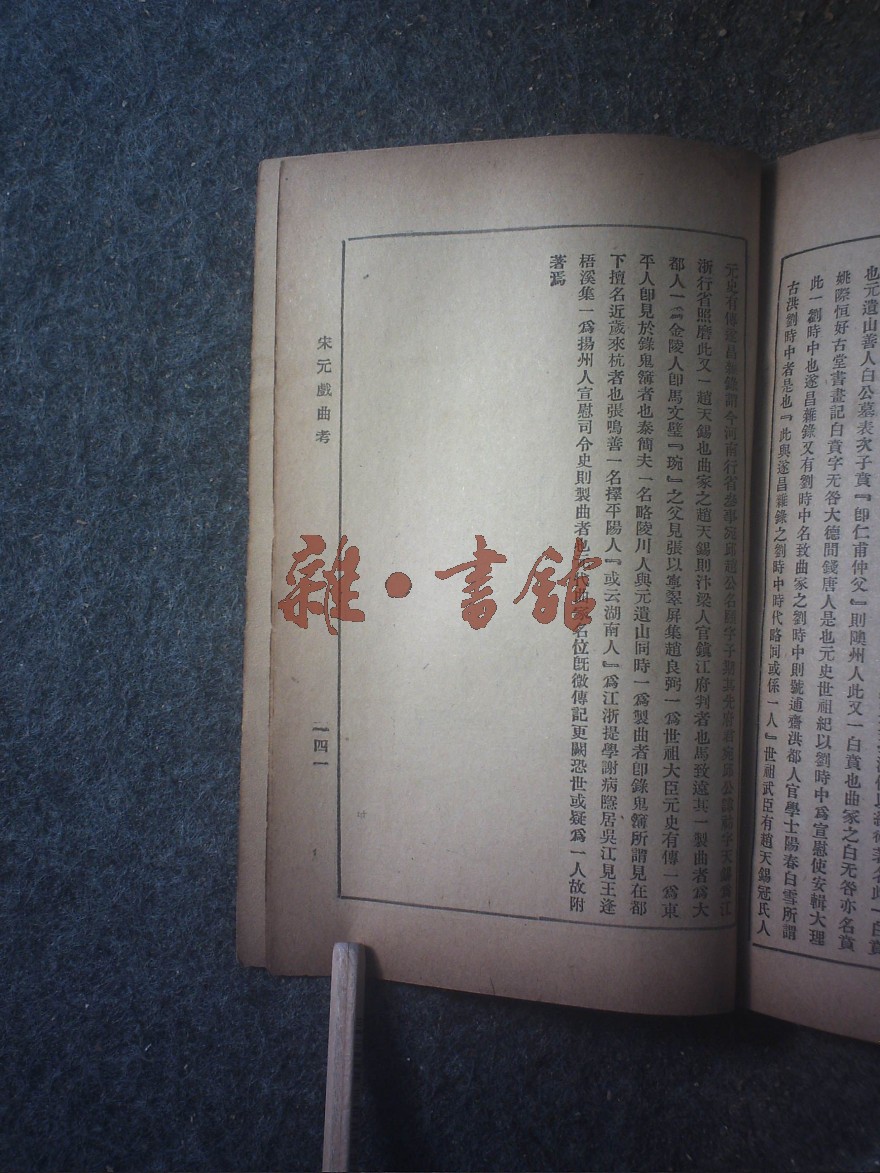 也元遺山善人白公墓表次子賁『卽仁甫仲父』則隩州人此又一白賁也曲家之白无咎亦名賁
姚際恒好古堂書畫記白賁字无咎大德間錢唐人是也元史世祖紀以劉時中爲宣慰使安輯大理
此一劉時中也遂昌雜錄又有劉時中名致曲家之劉時中則號逋齋洪都人官學士陽春白雪所謂
古洪劉時中者是也『此與遂昌雜錄之劉時中時代略同或係一人』世祖武臣有趙天錫冠氏人
元史有傳遂昌雜錄謂今河南行省參事宛邱趙公名頤字子期其先府君宛邱公諱祐字天錫爲江
浙行省照磨此又一趙天錫也曲家之趙天錫則汴梁人官鎮江府判者也馬致遠其一製曲者爲大
都人一『金陵人卽馬文璧『琬』之父見張以寧翠屏集趙良弼一爲世祖大臣元史有傳一爲東
平人卽見於錄鬼簿者也秦簡夫一名略陵川人與元遺山同時一爲製曲者卽錄鬼簿所謂見在都
下擅名近歲來杭者也張鳴善一名擇平陽人『或云湖南人』爲江浙提學謝病隱居吳江見王逢
梧溪集一爲揚州人宣慰司令史則製曲者也元代曲家名位旣微傳記更闕恐世或疑爲一人故附
著焉
宋元戲曲考
一四一
雜·書館